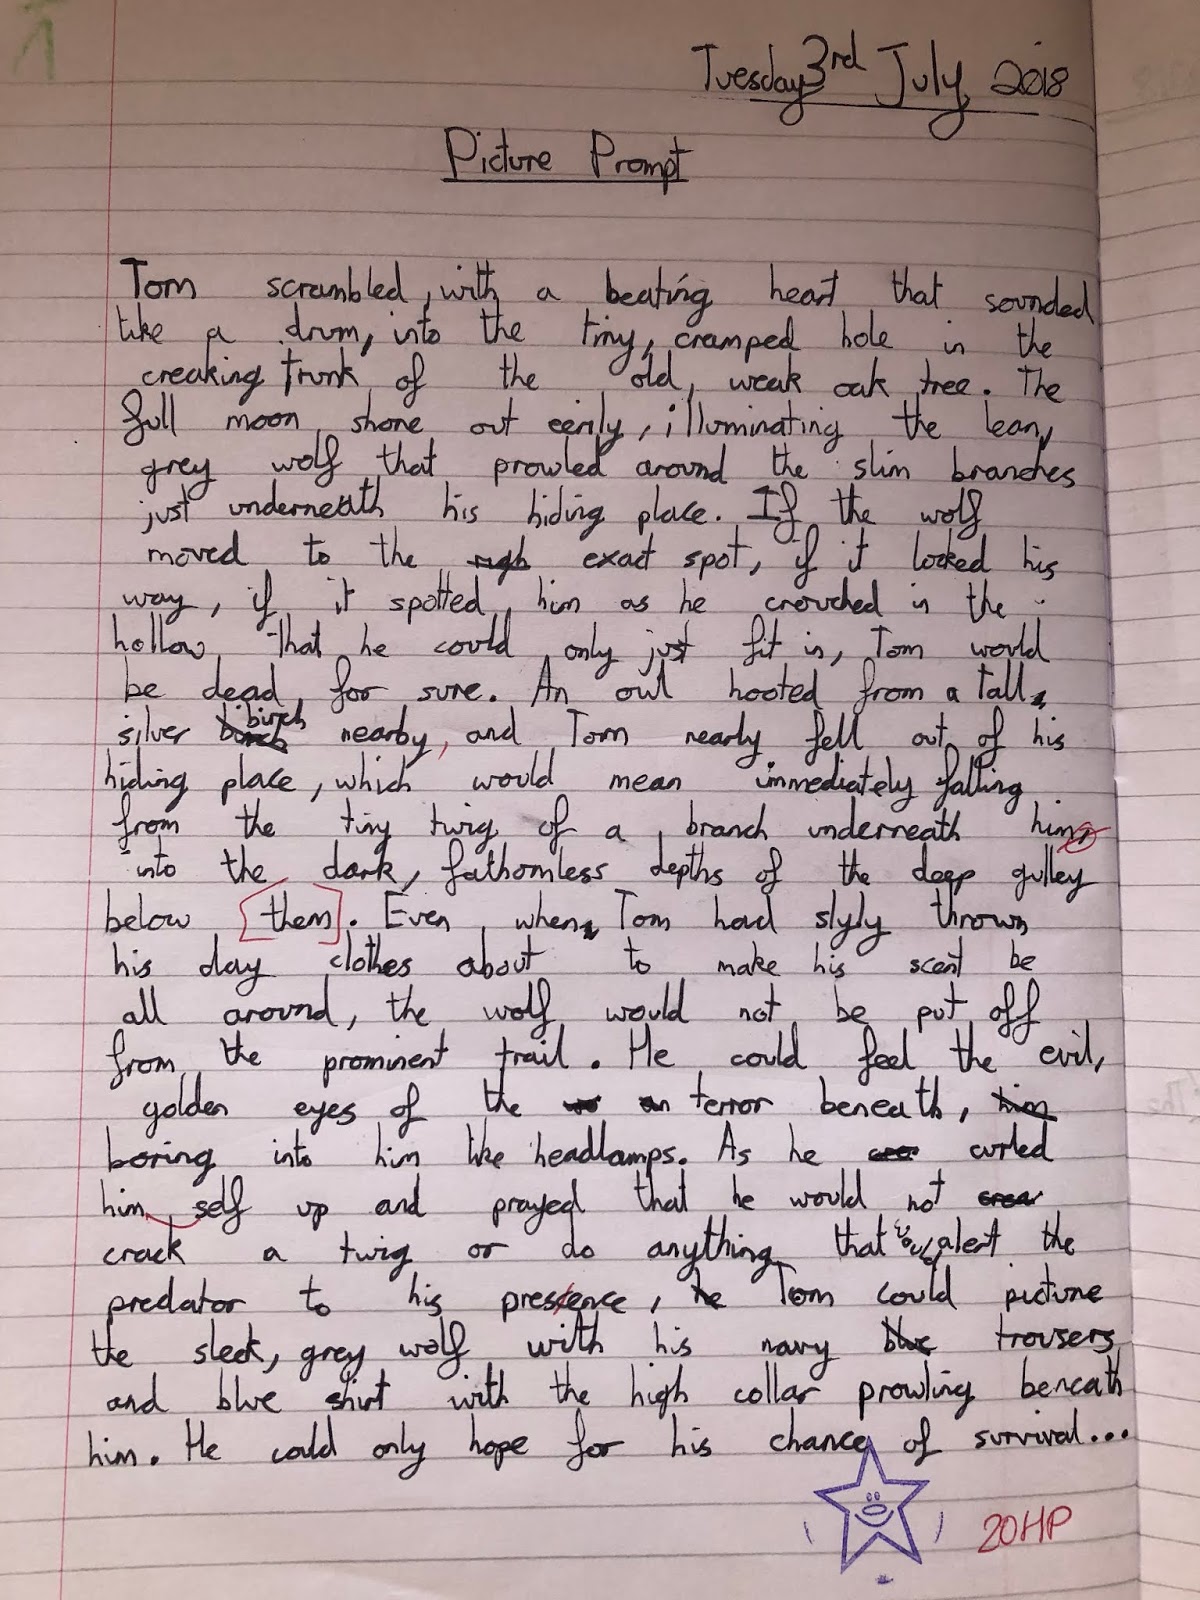 Tuesday 3rd July, 2018
Picture Prompt
Tom scrambled, with a beating heart that sounded
like a drum, into the tiny, cramped hole in the
creaking trunk of the old, weak oak tree. The
full moon shone out eerily, illuminating the lean,
grey wolf that prowled around the slim branches
just underneath his hiding place. If the wolf
moved to the exact spot, if it looked his
way, if it spotted him as he crouched in the
hollow that he could only just fit in, Tom would
be dead for sure. An owl hooted from a tall
silver birch nearby, and Tom nearly fell out of his
hiding place, which would mean immediately falling
from the tiny twig of a branch underneath him
into the dark, fathomless depths of the deep gulley
below them. Even when Tom had slyly thrown
his day clothes about to make his scent be
all around, the wolf would not be put off
from the prominent trail. He could feel the evil,
golden eyes of the terror beneath,
boring into him like headlamps. As he curled
him self up and prayed that he would not
crack a twig or do anything that would alert the
predator to his presence, Tom could picture
the sleek, grey wolf with his navy trousers
and blue shirt with the high collar prowling beneath
him. He could only hope for his chance of survival...
20HP